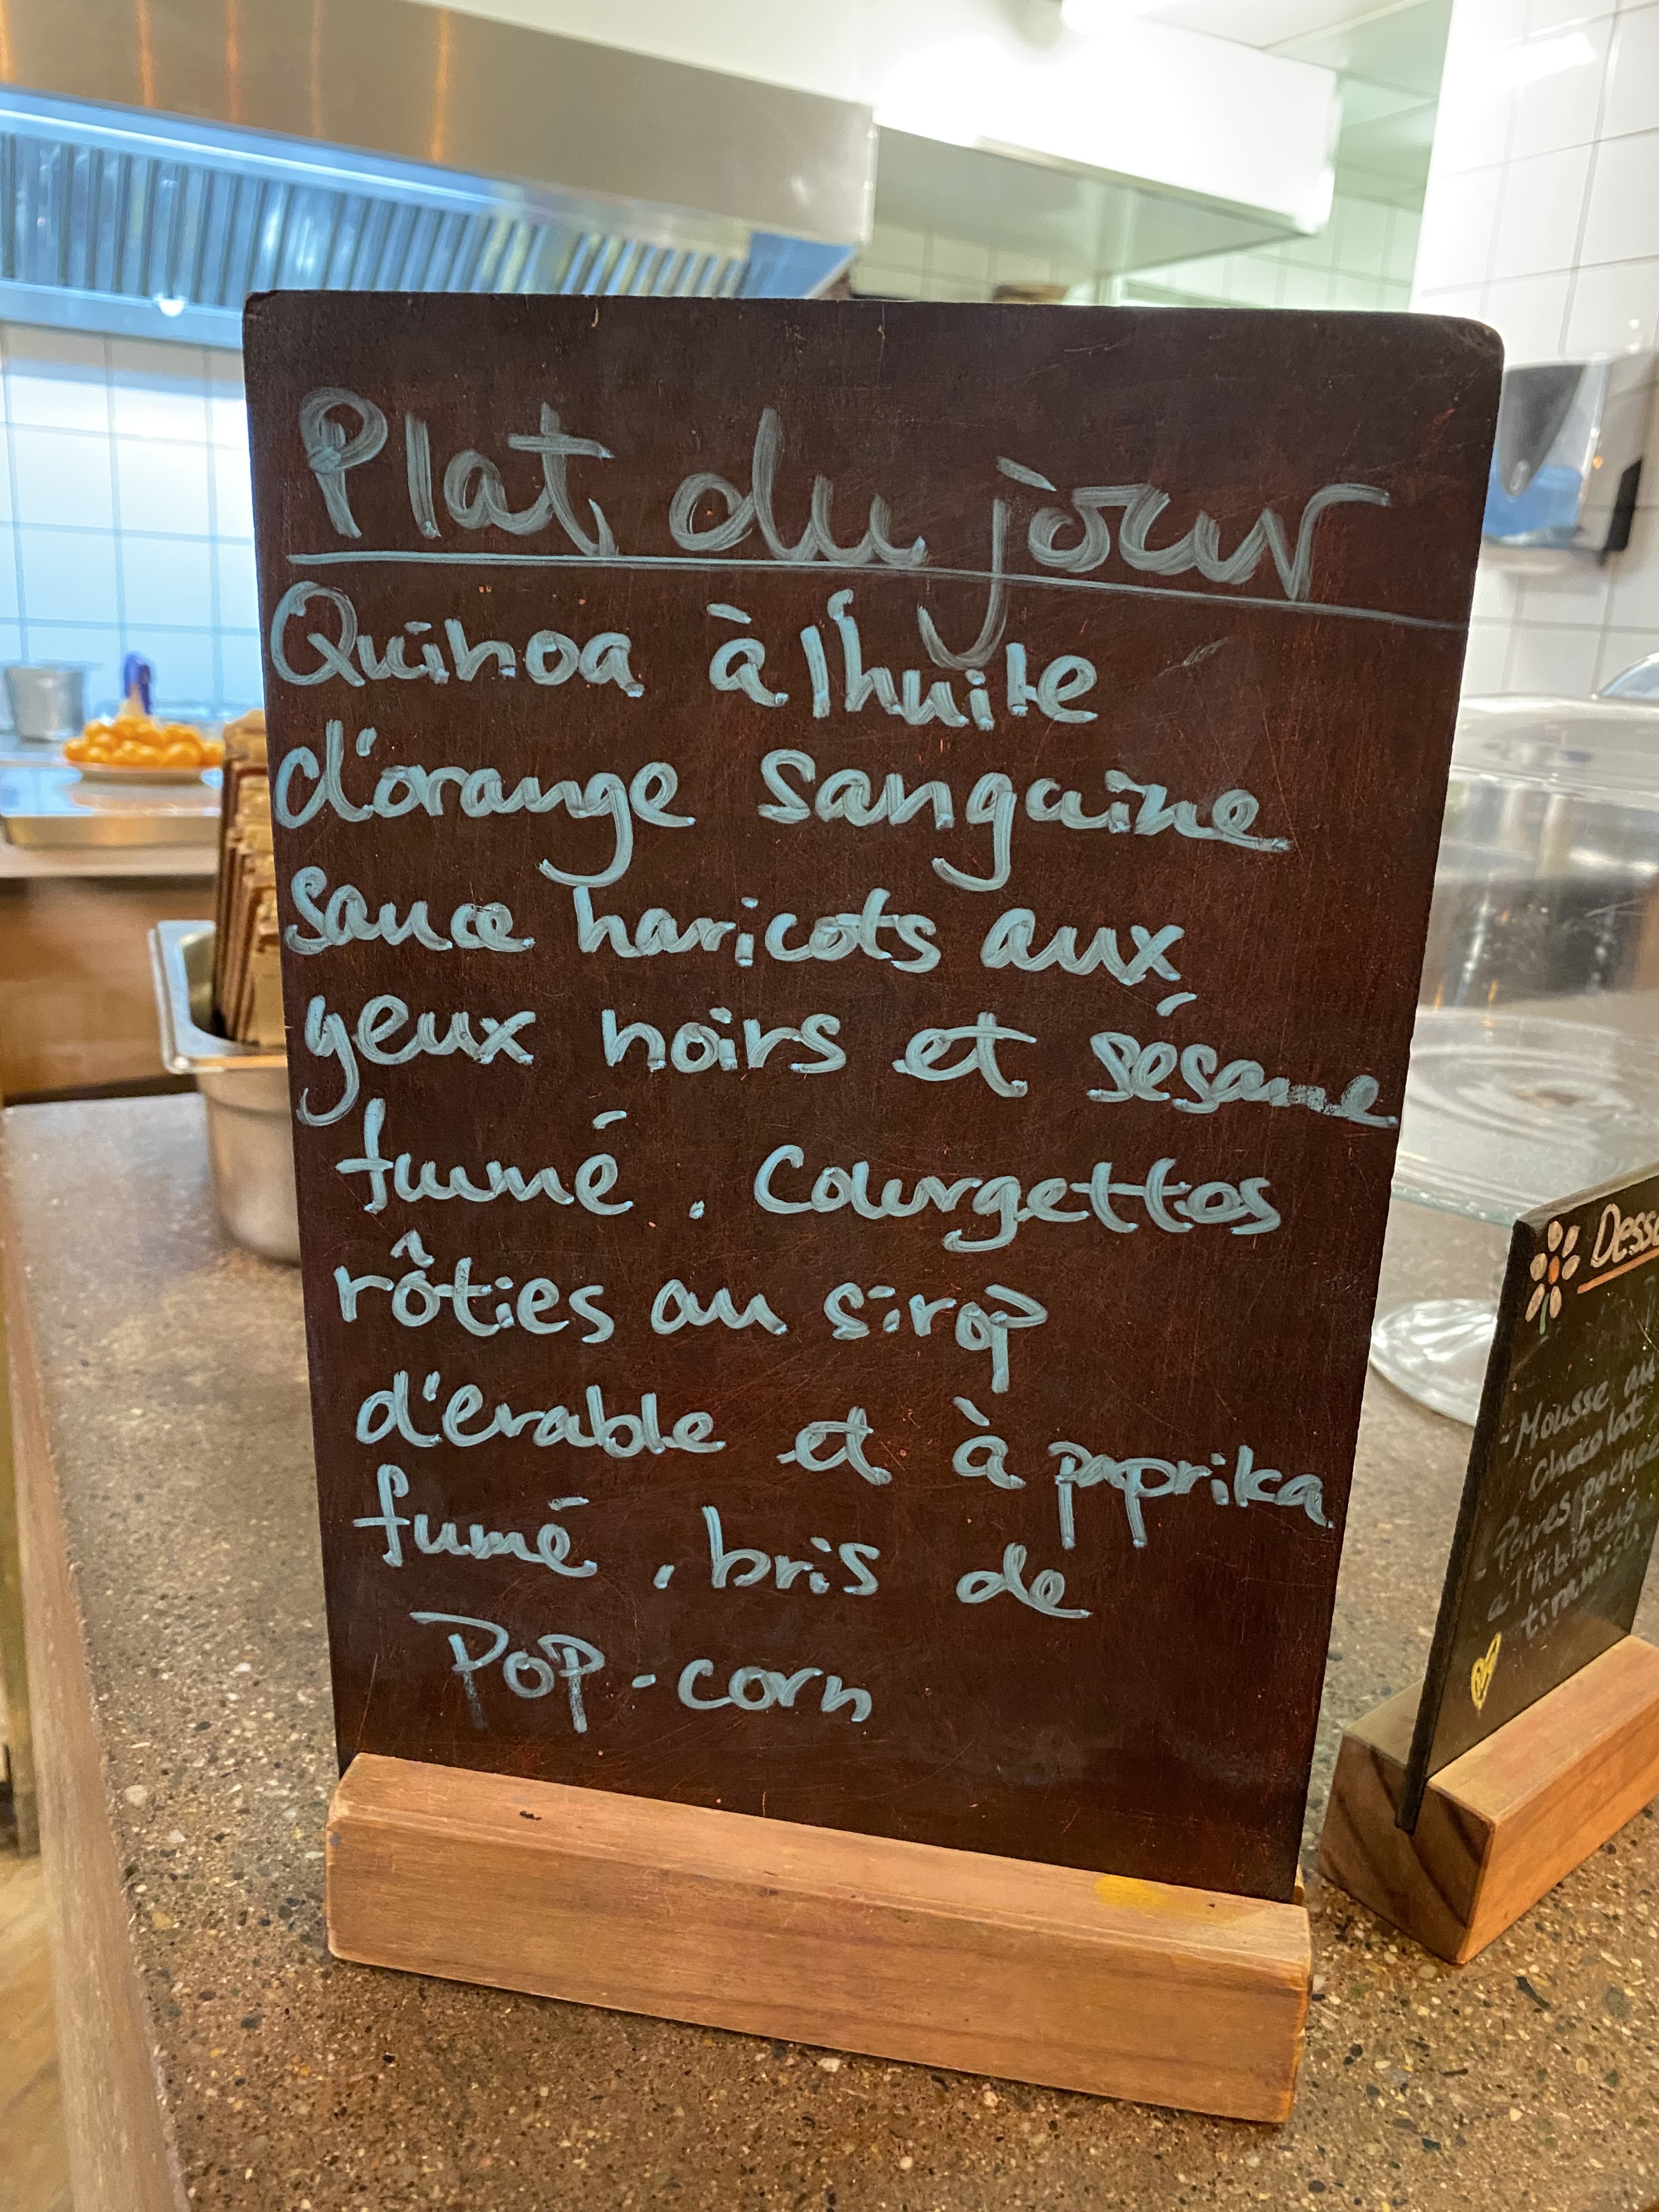 Plat du jour
Quinoa à l'huile
d'orange sanguine
sauce haricots aux
yeux noirs et sésame
fumé. Courgettes
rôties au sirop
d'érable et à paprika
fumé, bris de
POP-corn
Mousse au
Chocolat
Poires pochée
à l'hibiscus
tiramisu